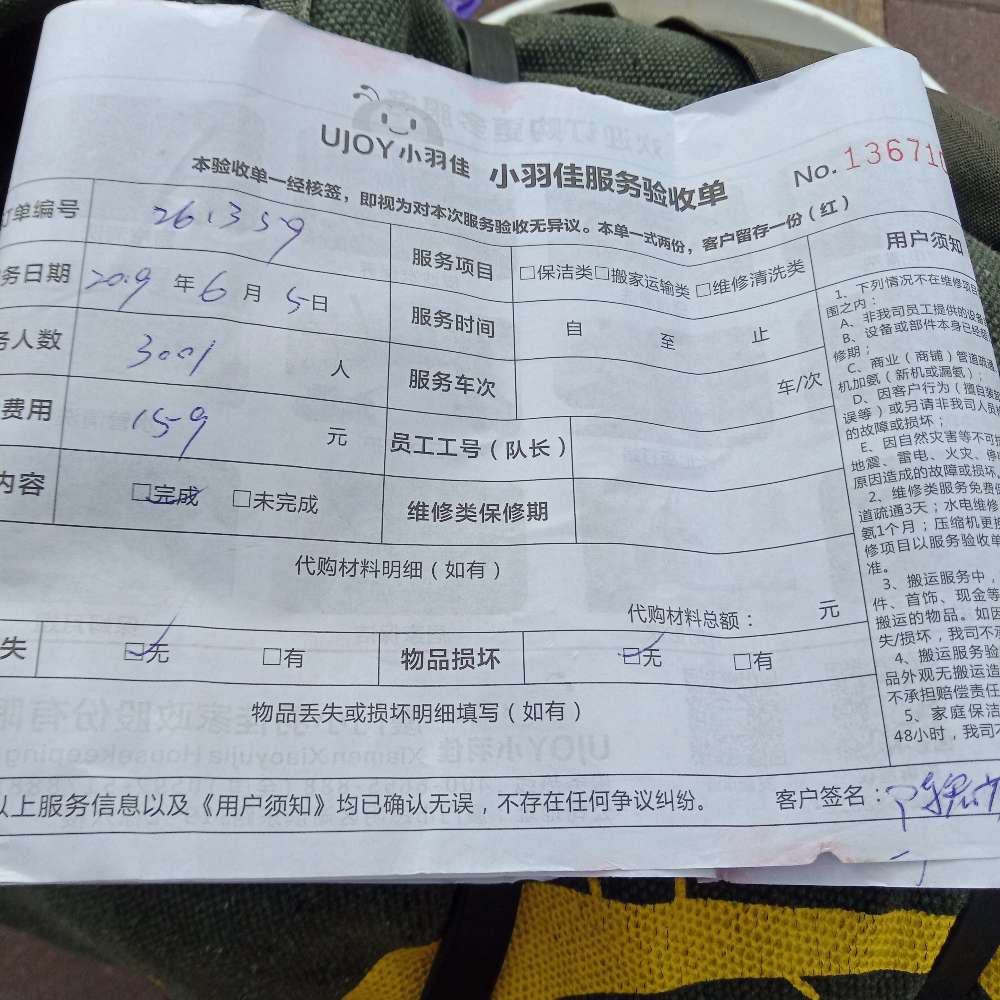 UJOY小羽佳 小羽佳服务验收单
No.13671
本验收单一经核签，即视为对本次服务验收无异议。本单一式两份，客户留存一份（红）
订单编号 261359 服务项目 □保洁类□搬家运输类□维修清洗类
务日期 2019年6月5日 服务时间 自 至 止
务人数 3001 人 服务车次 车/次
费用 159 元 员工工号（队长）
内容 □完成 □未完成 维修类保修期
代购材料明细（如有）
代购材料总额： 元
失 □无 □有 物品损坏 □无 □有
物品丢失或损坏明细填写（如有）
以上服务信息以及《用户须知》均已确认无误，不存在任何争议纠纷。 客户签名：
用户须知
1、下列情况不在维修项目
围之内：
A、非我司员工提供的设备
B、设备或部件本身已经超
修期；
C、商业（商铺）管道疏通
机加氨（新机或漏氨）；
D、因客户行为（擅自装
误等）或另请非我司人员
的故障或损坏；
E、因自然灾害等不可抗
地震、雷电、火灾、停
原因造成的故障或损坏。
2、维修类服务免费保
道疏通3天；水电维修
氨1个月；压缩机更换
修项目以服务验收单
准。
3、搬运服务中，
件、首饰、现金等
搬运的物品。如因
失/损坏，我司不承
4、搬运服务验
品外观无搬运造
不承担赔偿责任
5、家庭保洁
48小时，我司不